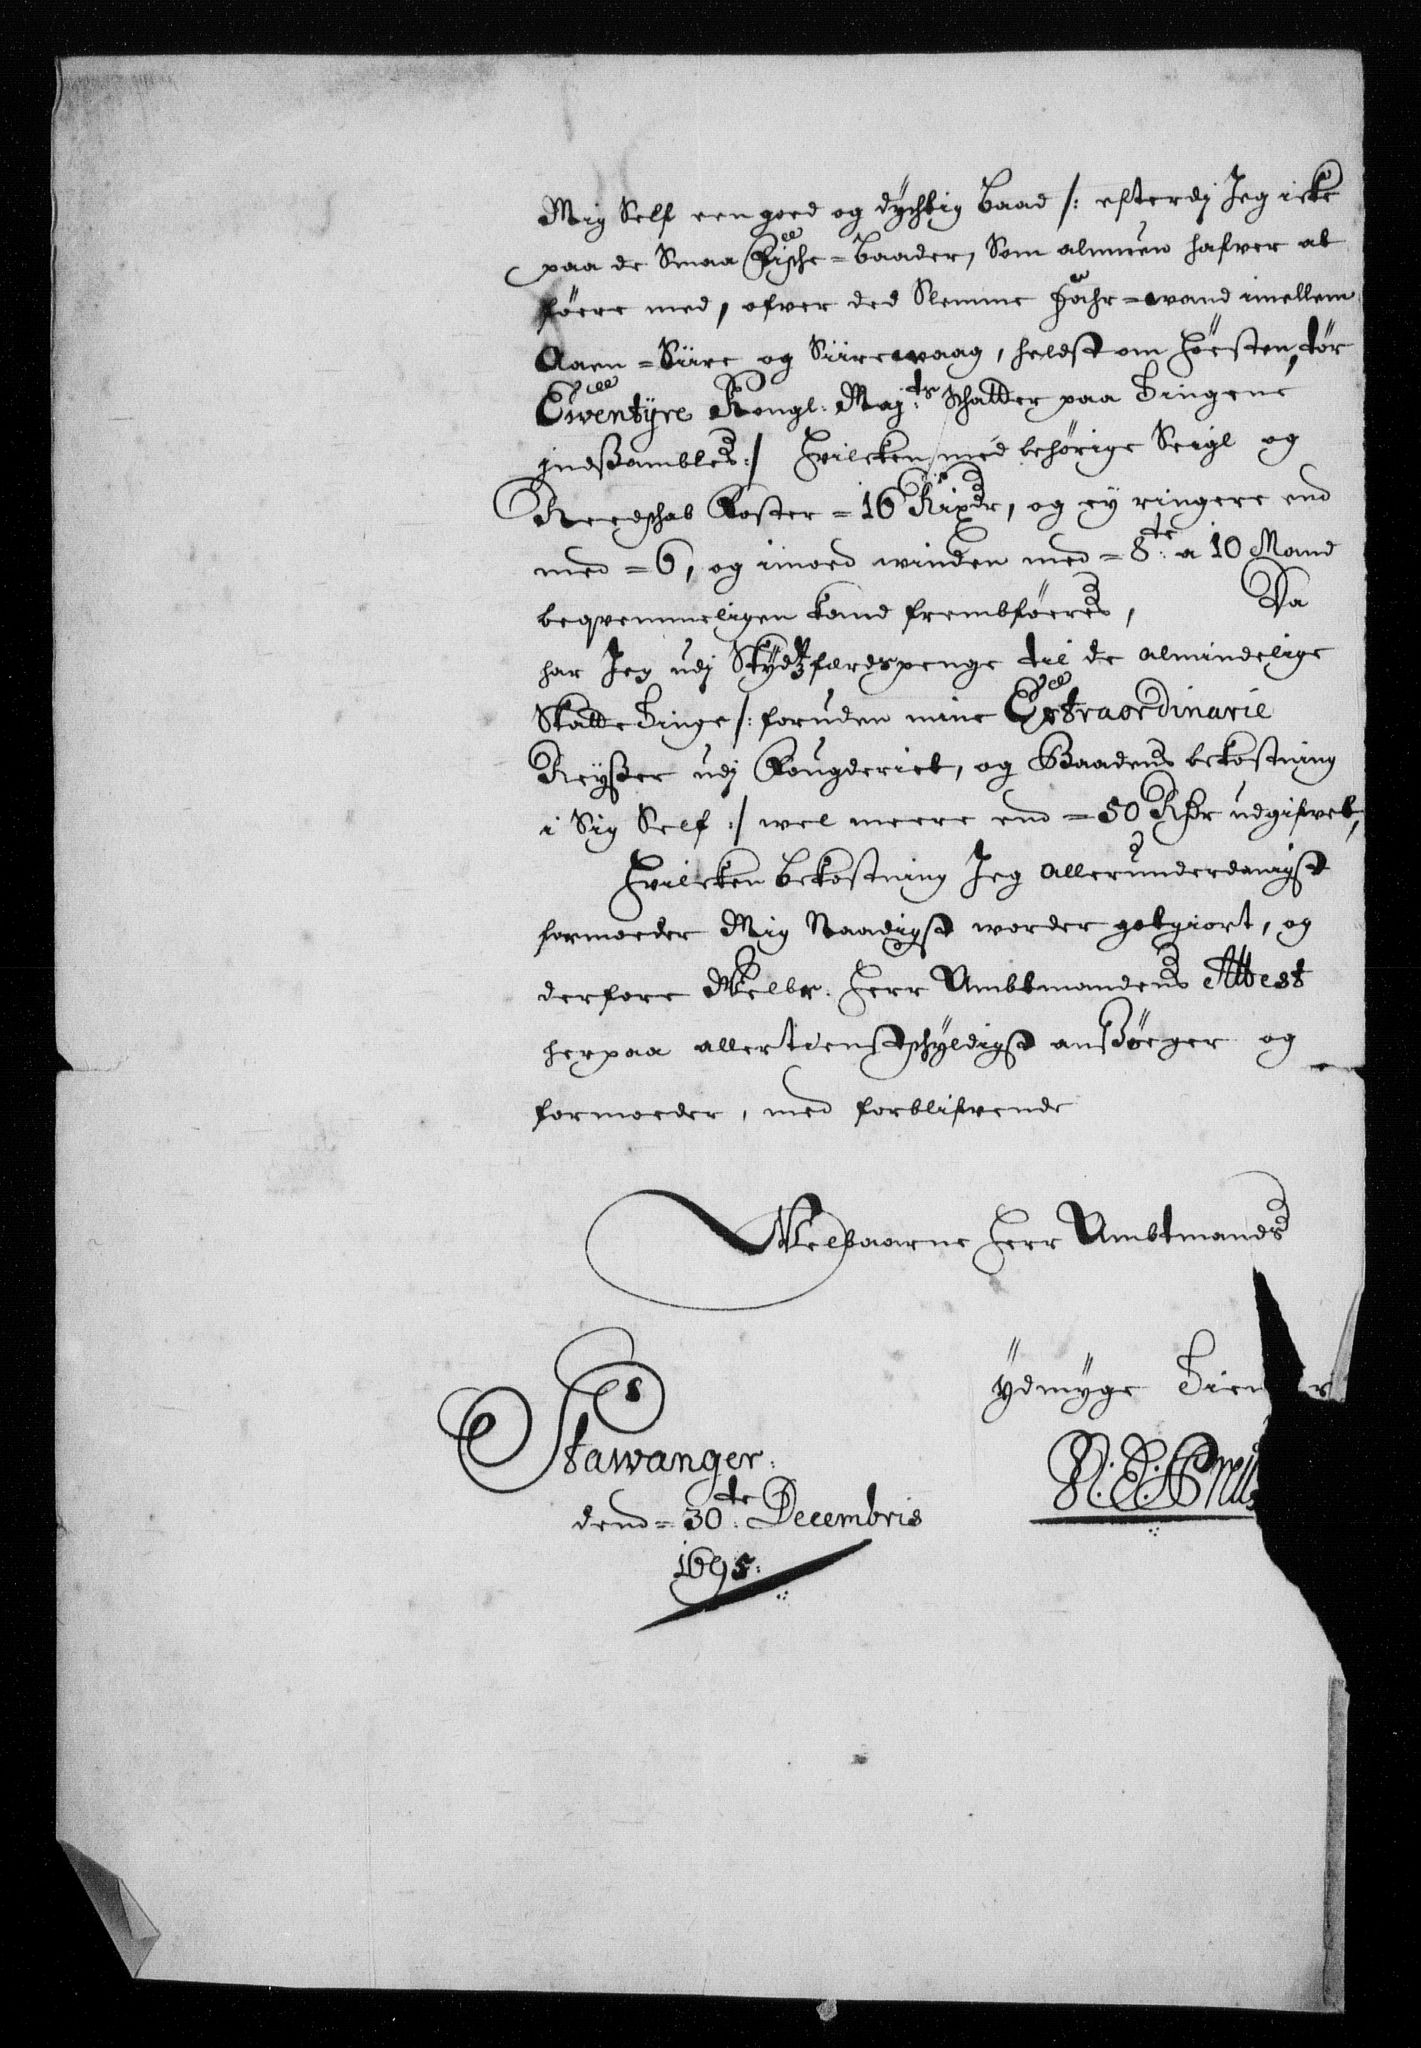 Mig Self een goed og dÿchtig baad /: efterdj Jeg icke
paa de Smaa Fische-baader, Som almuen hafver at
föere med, ofver ded Slemme fahr-wand imellem
Aaen-Siire og Siirewaag, helst om Höesten, tör
Ewentÿre Kongl: Maj:ts Schatter paa Tingene
indsambles :/ Hvilcken med behörige Seigl og
Reedschab koster = 16 Rixdr, og ey ringere end
med = 6, og imoed winden med = 8te a 10 Mand
beqvemmeligen kand frembföeres, Da
har Jeg udj Skÿdtzferdspenge til de almindelige
Skatte Tinge /: foruden mine Extraordinarie
Reyßer udj Fougderiet, og Baadens bekostning
i Sig Self :/ wel meere end = 50 Rdr udgifvet,
Hvilcken bekostning Jeg allerunderdanigst
formoeder Mig Naadigst worder gotgiort, og
derfore Welbr. Herr Ambtmandens Attest
herpaa allertienstschÿldigst ansßöeger og
formoeder, med forblifvende
Welbaarne Herr Ambtmands
ÿdmÿge Tien r
Stawanger:
dend = 30te: Decembris
1695: